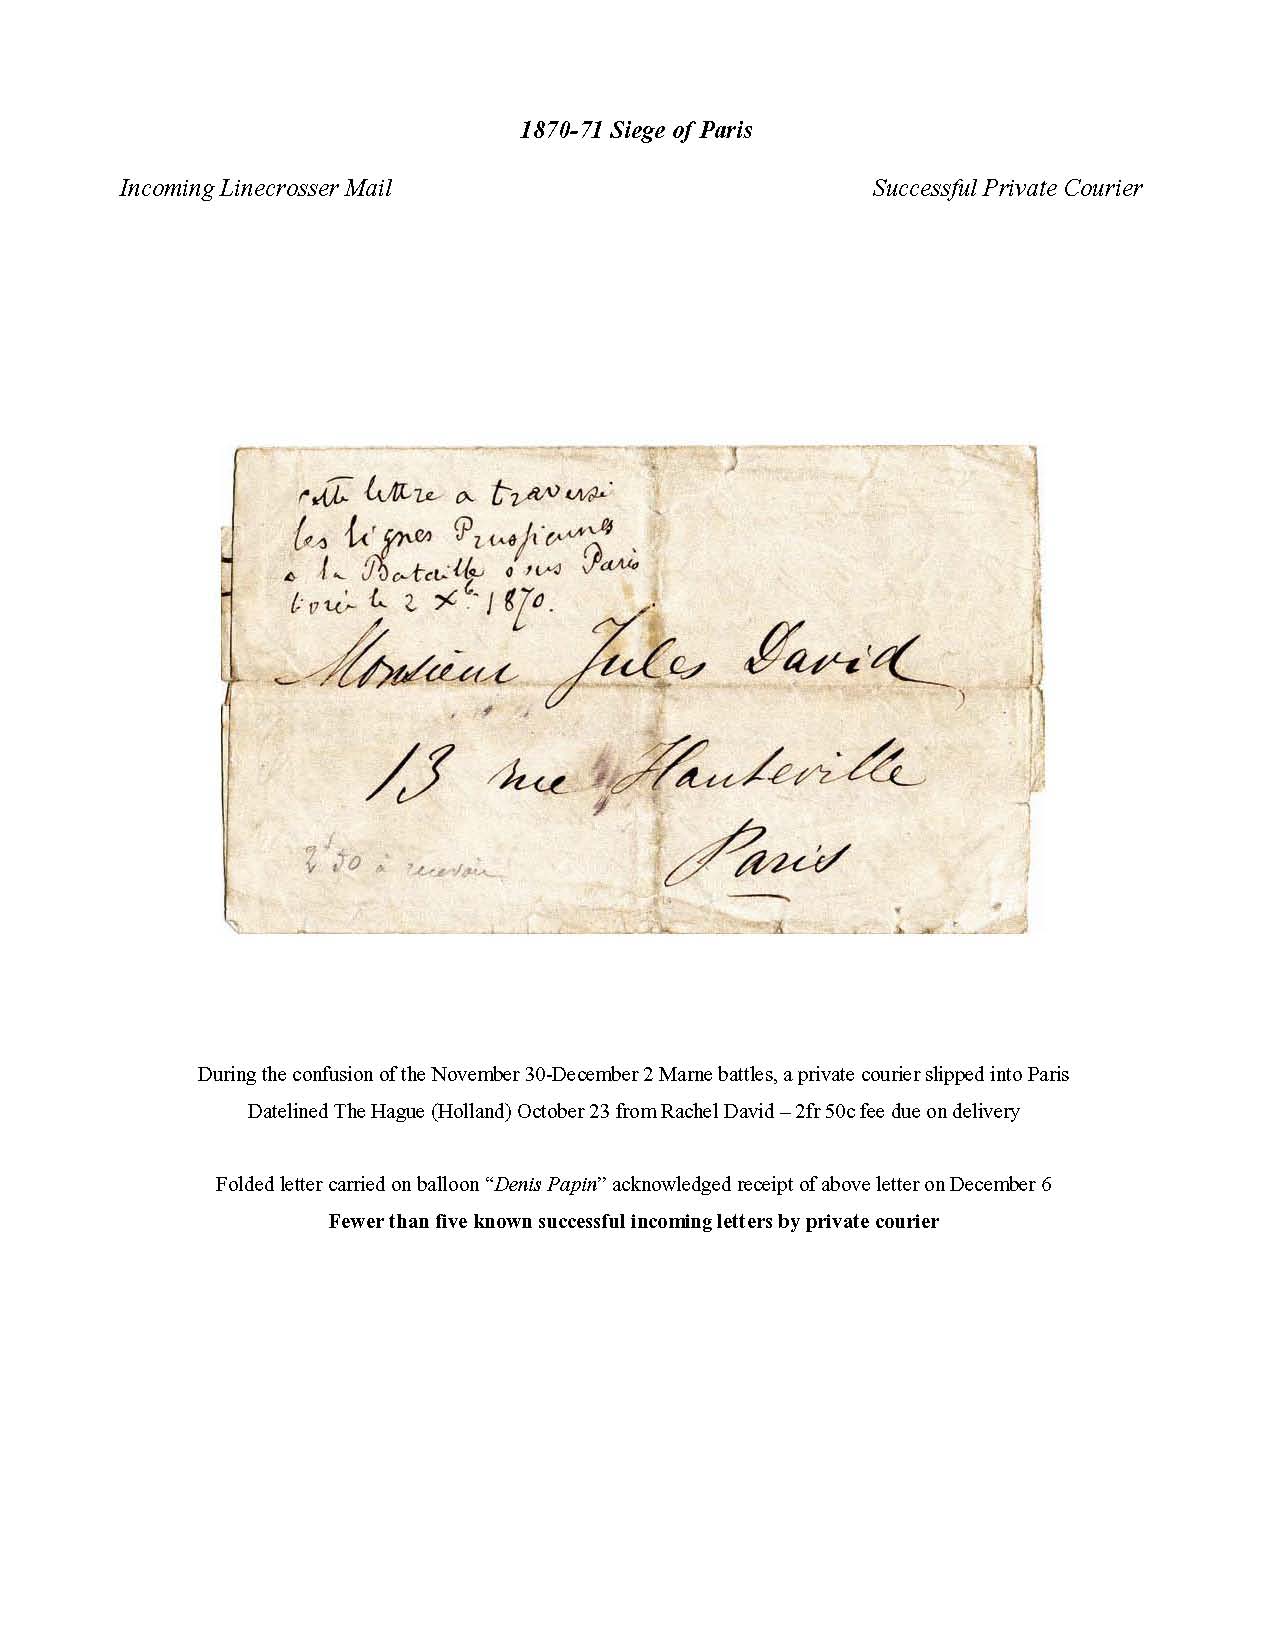 1870-71 Siege of Paris
Incoming Linecrosser Mail
Successful Private Courier
cette lettre a traversé
les lignes Prussiennes
a la Bataille sous Paris
le 2 Xb. 1870.
Monsieur Jules David
13 rue Hauteville
Paris
2f 50 à recevoir
During the confusion of the November 30-December 2 Marne battles, a private courier slipped into Paris
Datelined The Hague (Holland) October 23 from Rachel David – 2fr 50c fee due on delivery
Folded letter carried on balloon “Denis Papin” acknowledged receipt of above letter on December 6
Fewer than five known successful incoming letters by private courier